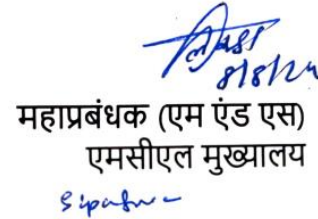 8/8/24
महाप्रबंधक (एम एंड एस)
एमसीएल मुख्यालय